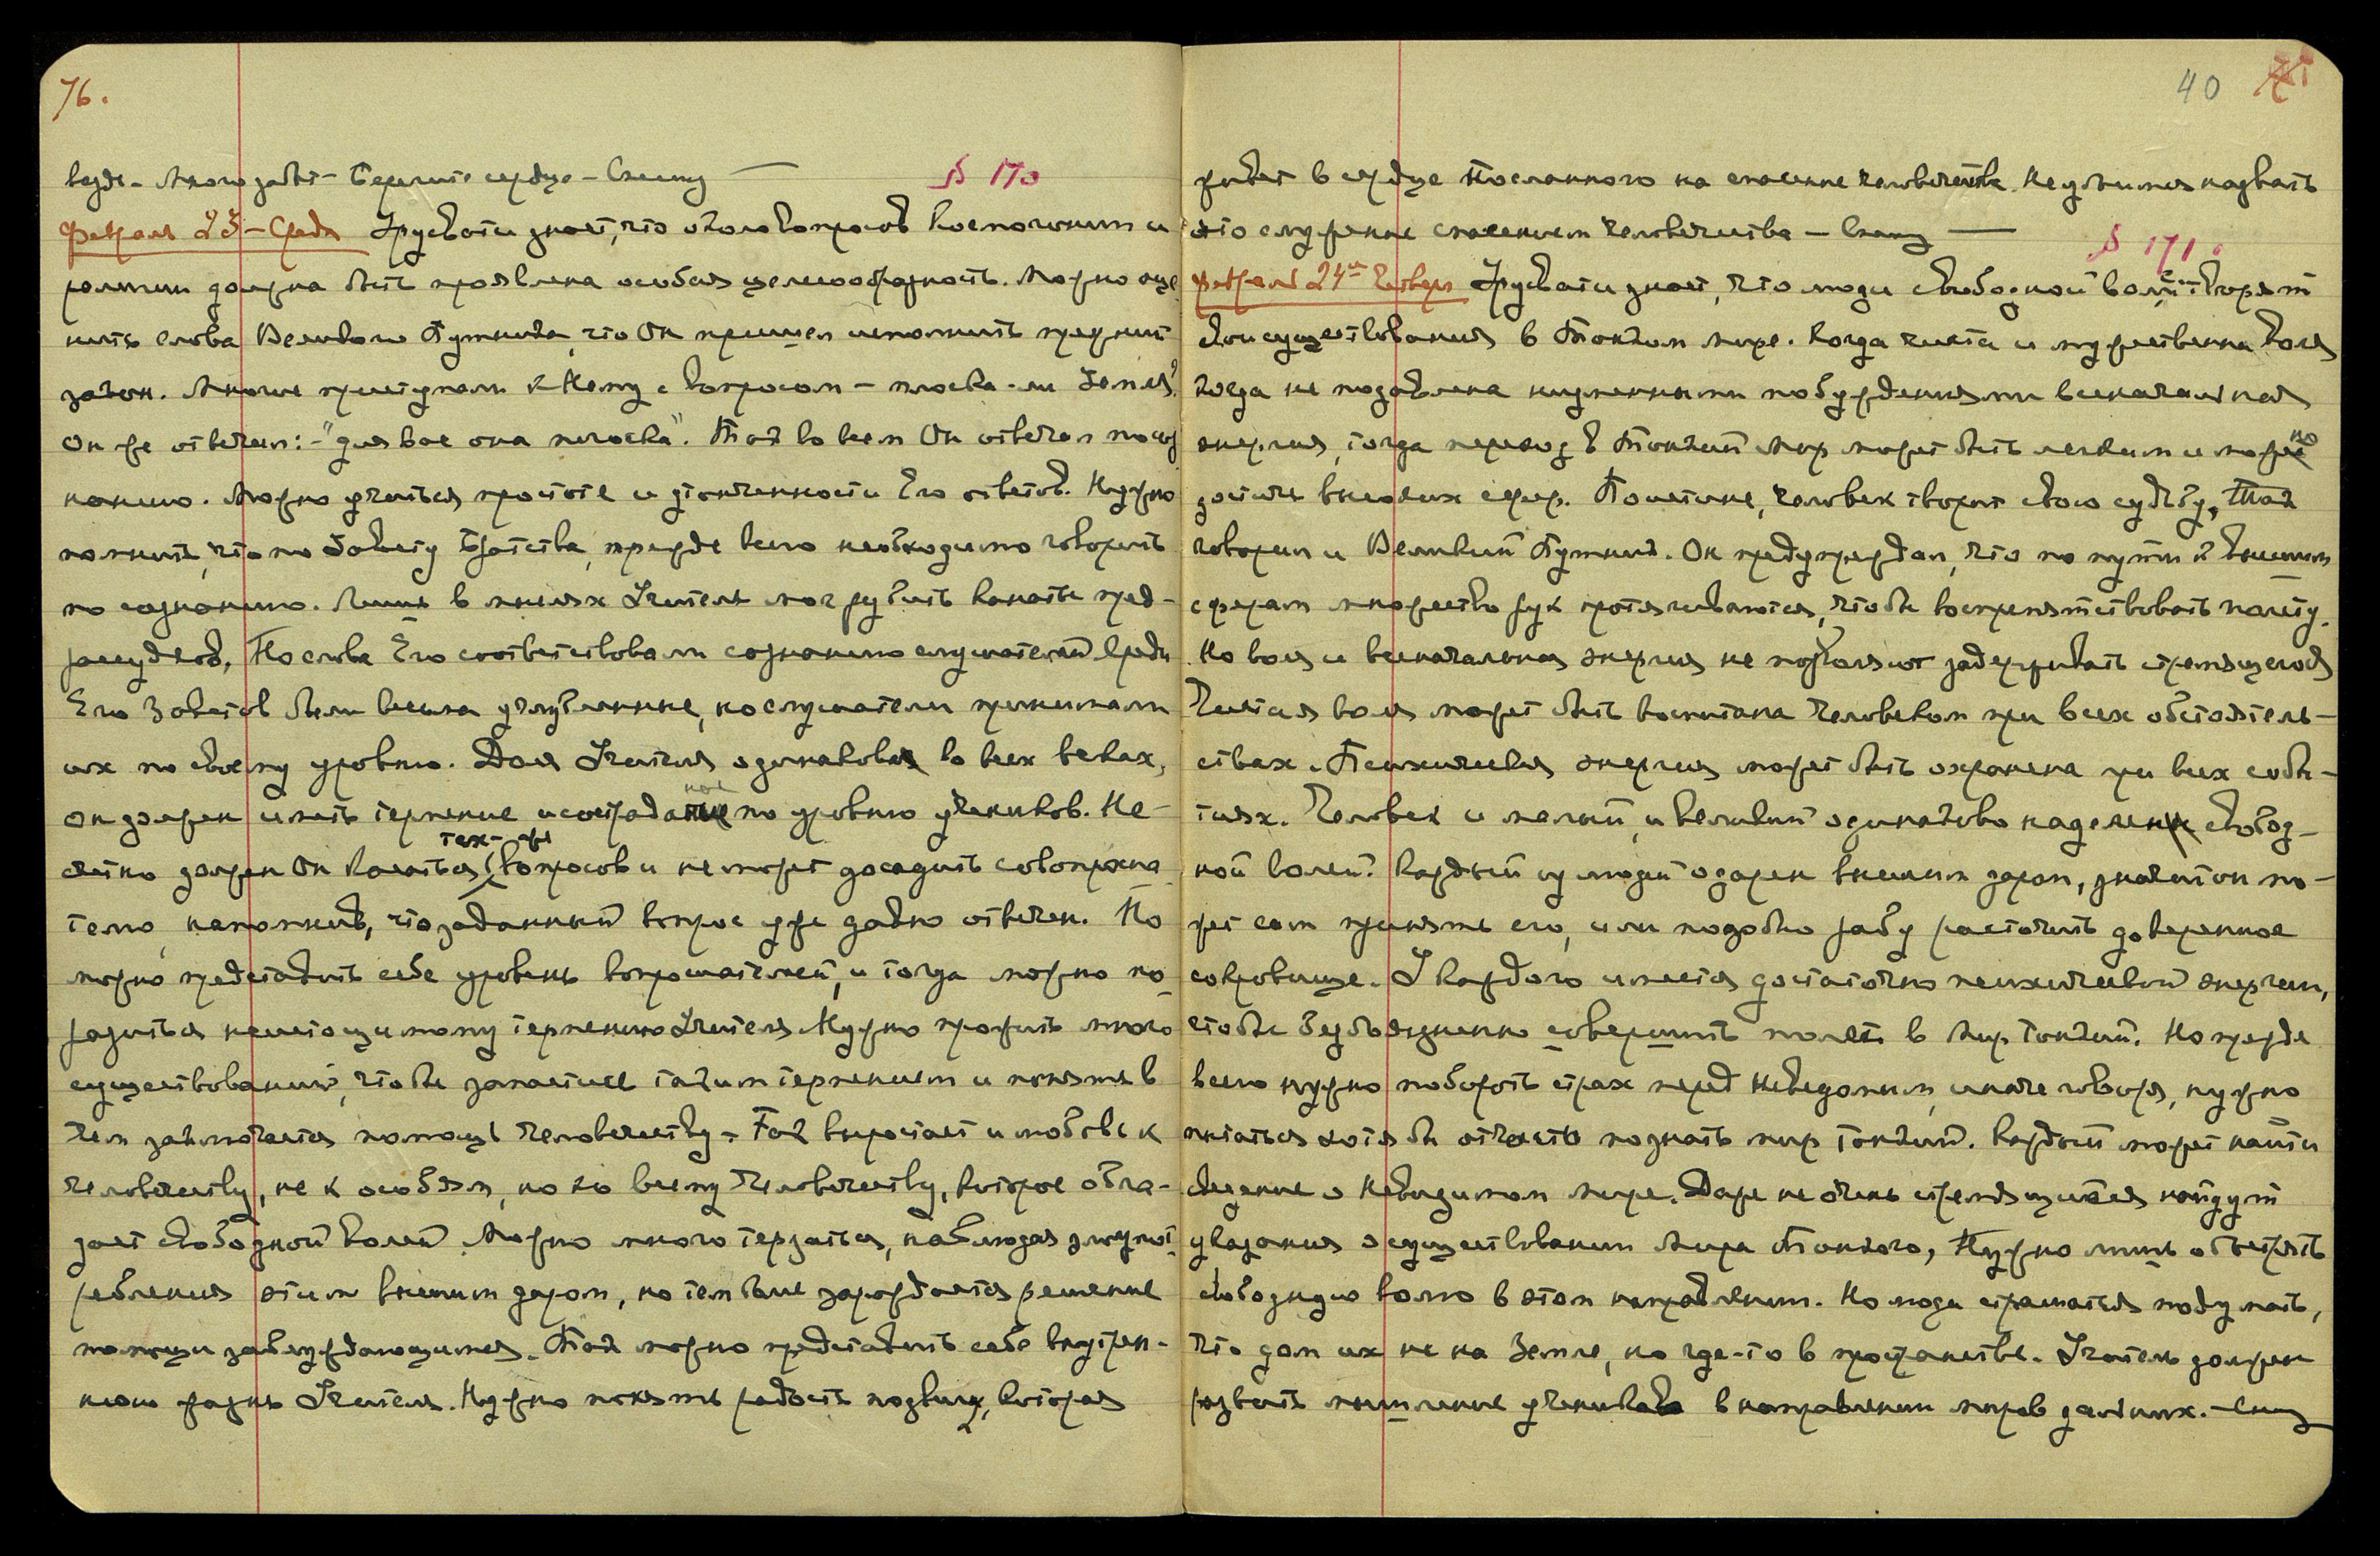 76.
везде – Много забот – Берегите сердце – Кончу
§ 170
Февраль 23 – Среда Урусвати знает, что около вопросов космогонии и
религии должна быть проявлена особая целесообразность. Можно оце-
нить слова Великого Путника, что Он пришел исполнить прежний
закон. Многие приступали к Нему с вопросом – плоска-ли Земля?
Он же отвечал: – "для вас она плоска". Так во всем Он отвечал по соз
нанию. Можно учиться простоте и утонченности Его ответов. Нужно
помнить, что по Завету Братства, прежде всего необходимо говорить
по сознанию. Лишь в мыслях Учитель мог рубить канаты пред-
рассудков, Но слова Его соответствовали сознанию слушателей. Среди
Его Заветов были весьма углубленные, но слушатели принимали
их по своему уровню. Доля Учителя одинакова во всех веках,
он должен иметь терпение и сострадание по уровню учеников. Не-
тех-же
должен Он касаться вопросов и не может досадить совопросни
телю, напомнив, что заданный вопрос уже давно отвечен. Но
можно представить себе уровень вопрошателей, и тогда можно по-
разиться неистощимому терпению Учителя. Нужно прожить много
существований, чтобы запастись таким терпением и понять в
чем заключается помощь человечеству – Так вырастает и любовь к
человечеству, не к особям, но ко всему человечеству, которое обла-
дает свободной волей. Можно много терзаться, наблюдая злоупот
ребления этим высшим даром, но тем более зарождается решение
помощи заблуждающимся. Так можно представить себе внутрен-
нюю жизнь Учителя. Нужно понять радость подвига, которая
40
живет в сердце Посланного на спасение человечества. Неудивимся назвать
это служение спасением человечества – Кончу
§ 171.
Февраль 24ое Четверг Урусвати знает, что люди свободной волей творят
свои существования в Тонком мире. Когда чиста и мужественна воля
когда не подавлена низменными побуждениями всеначальная
энергия, тогда переход в Тонкий Мир может быть легким и можно
достичь высоких сфер. Поистине, человек творит свою судьбу, Так
говорил и Великий Путник. Он предупреждал, что по пути к высшим
сферам множество рук протягиваются, чтобы воспрепятствовать полету.
Но воля и всеначальная энергия не позволяют задерживать стремящегося
Чистая воля может быть воспитана человеком при всех обстоятель-
ствах. Психическая энергия может быть охранена при всех собы-
тиях. Человек и малый, и великий одинаково наделен свобод-
ной волей. Каждый из людей одарен высшим даром, значит он мо-
жет сам принять его, или подобно рабу расточить доверенное
сокровище. У каждого имеется достаточно психической энергии,
чтобы безболезненно совершить полет в Мир Тонкий. Но прежде
всего нужно побороть страх перед Неведомым, иначе говоря, нужно
пытаться хотя бы отчасти познать мир тонкий. Каждый может найти
сведение о Невидимом мире. Даже не очень стремящиеся найдут
указания о существовании Мира Тонкого, Нужно лишь обострить
свободную волю в этом направлении. Но люди страшатся подумать,
что дом их не на Земле, но где-то в пространстве. Учитель должен
развить мышление учеников в направлении миров дальних. – Кончу